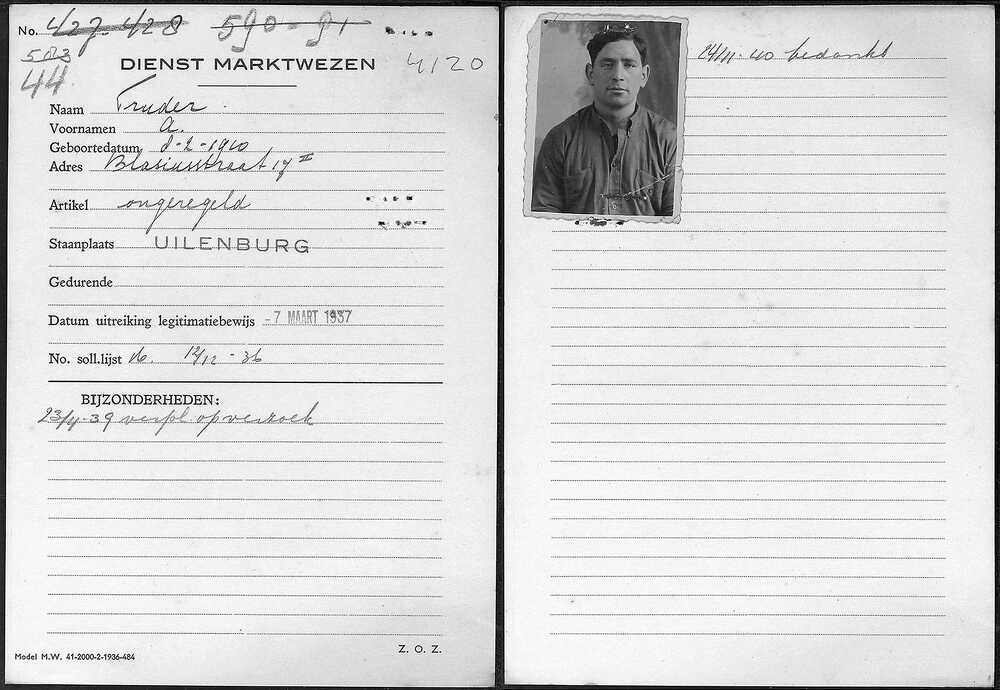 No. 427-428 590-91
503
44
DIENST MARKTWEZEN 4120
Naam Truder
Voornamen A.
Geboortedatum 8-2-1910
Adres Blasiusstraat 17 II
Artikel ongeregeld
Staanplaats UILENBURG
Gedurende
Datum uitreiking legitimatiebewijs -7 MAART 1937
No. soll.lijst 16. 12/12-36
BIJZONDERHEDEN:
23/4-39 verpl. op verzoek
Model M.W. 41-2000-2-1936-484
Z. O. Z.
14/11-40 bedankt